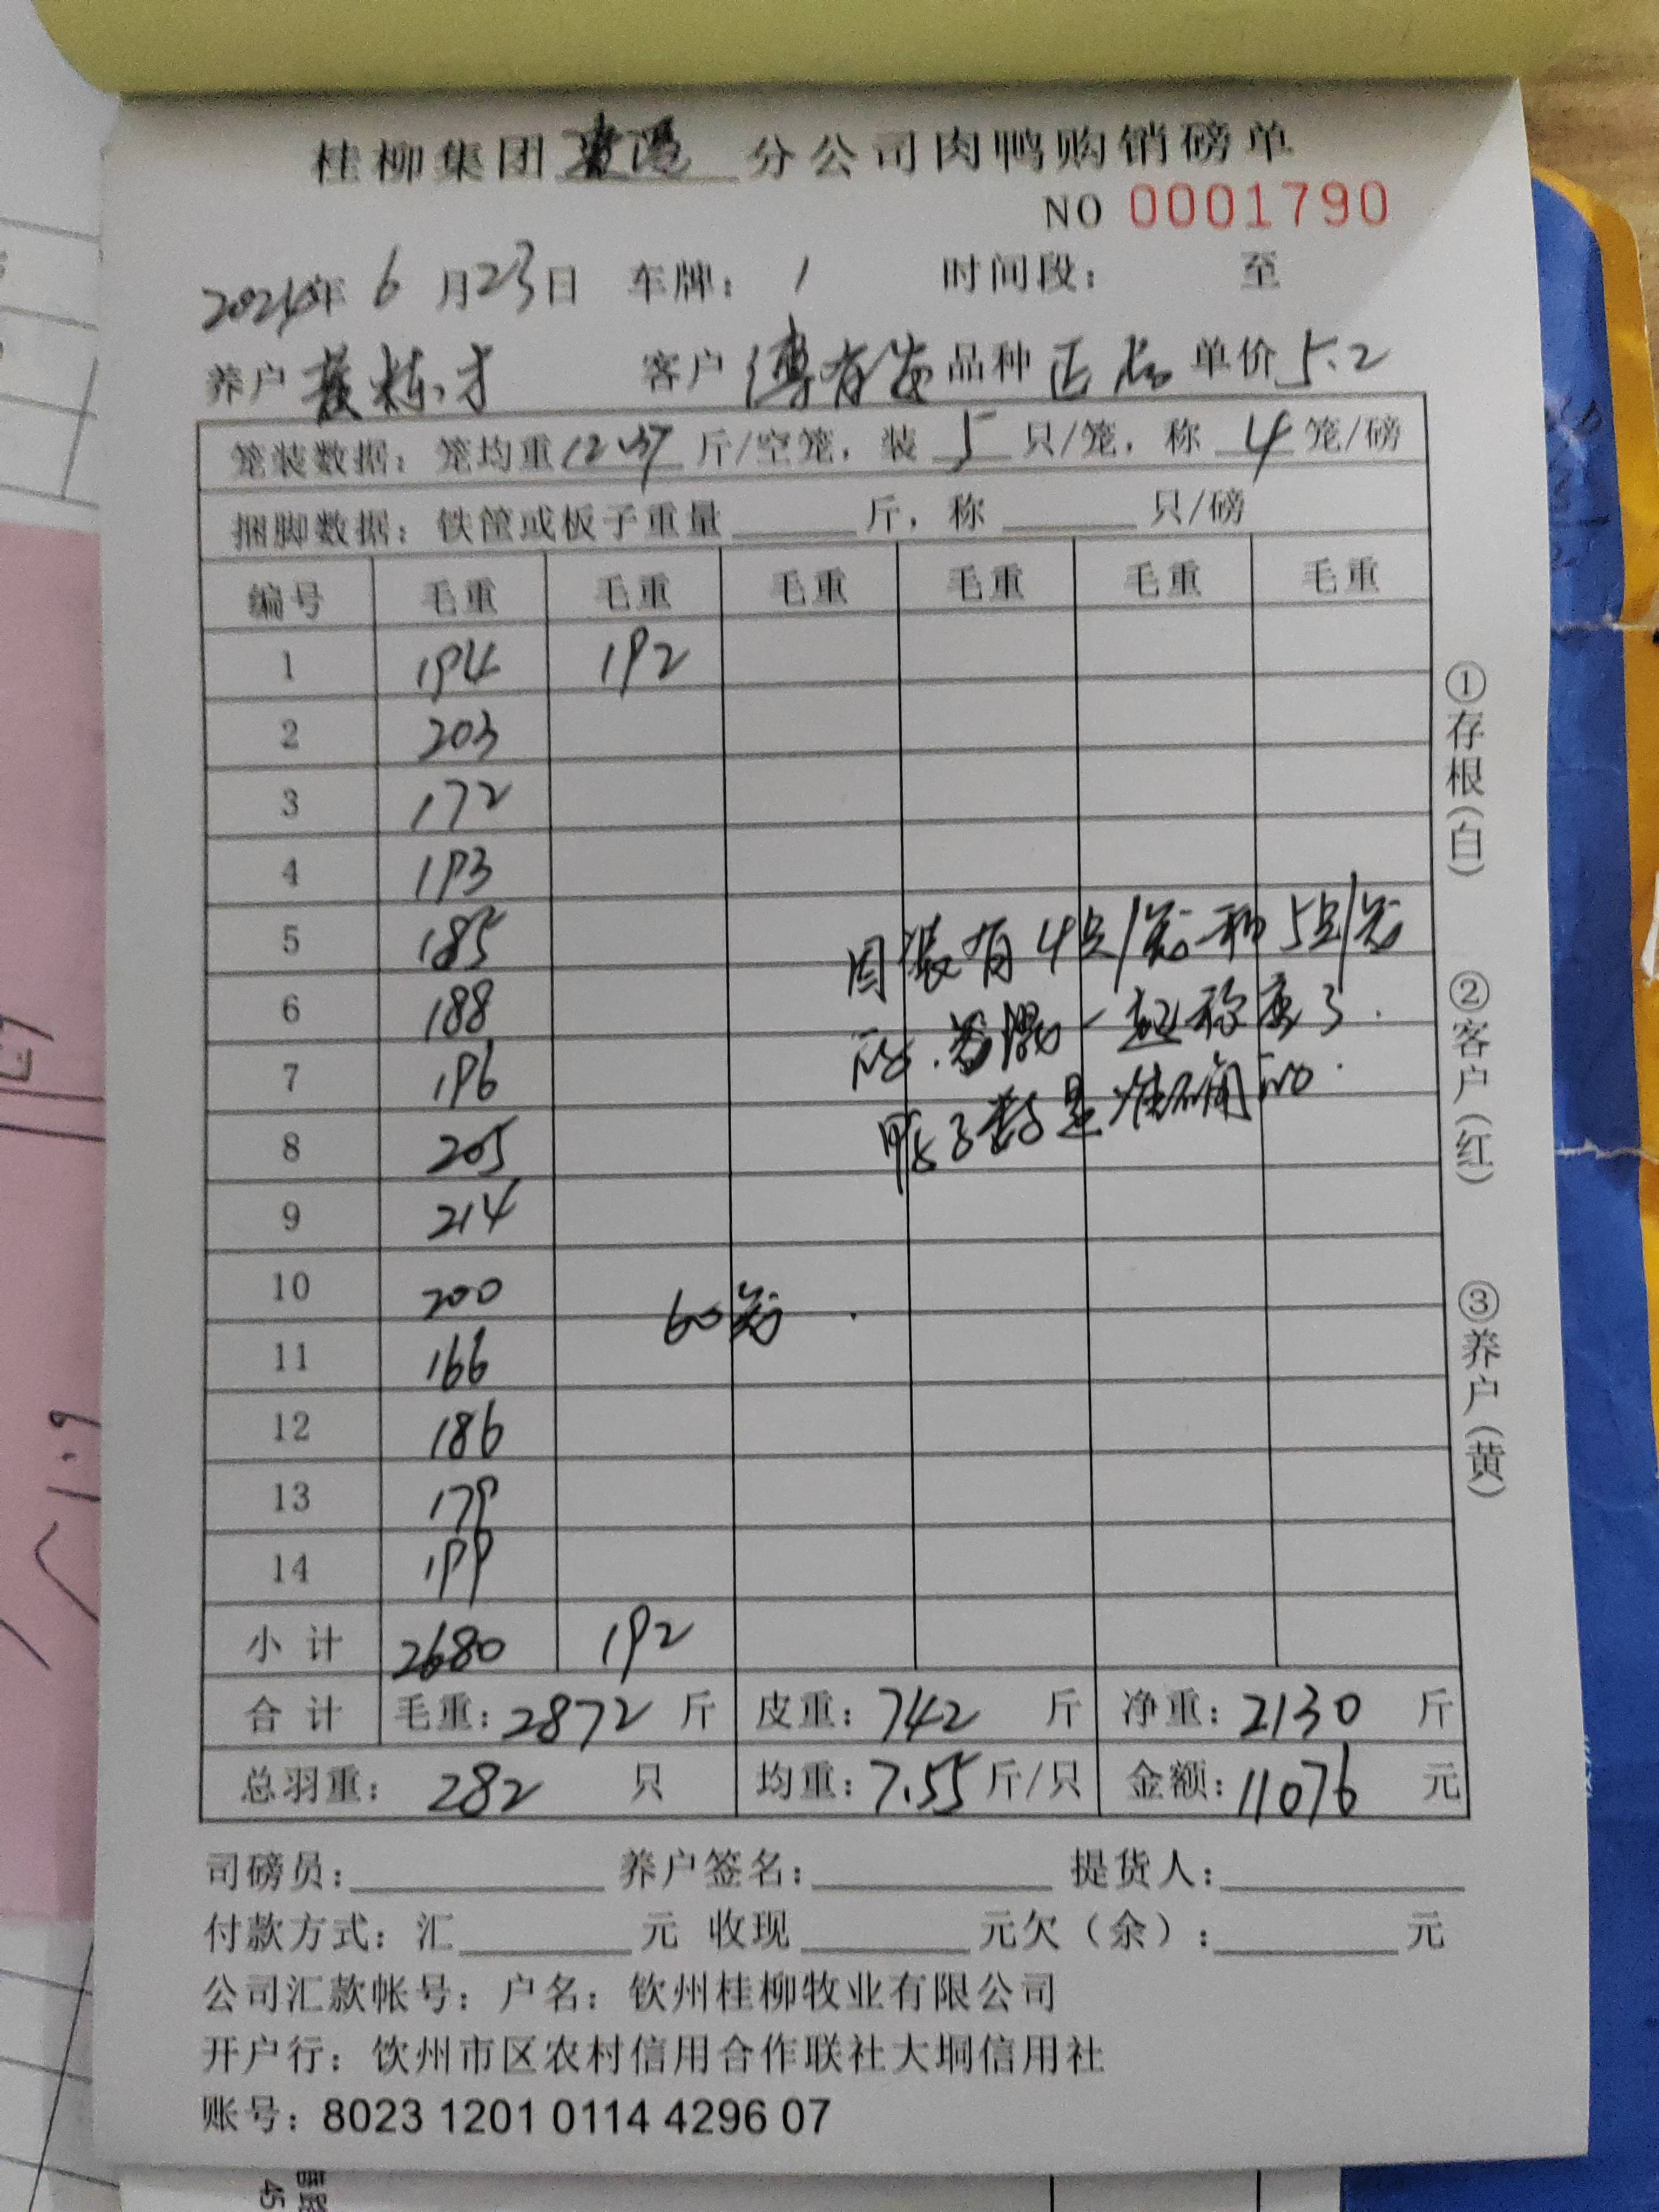 桂柳集团 分公司肉鸭购销磅单
NO 0001790
2024年 6 月23日 车牌： 1 时间段： 至
养户 客户 傅有发 品种 正品 单价5.2
笼装数据：笼均重12.37斤/空笼，装 5 只/笼，称 4 笼/磅
捆脚数据：铁筐或板子重量 斤，称 只/磅
编号 毛重 毛重 毛重 毛重 毛重 毛重
1 194 192
2 203
3 172
4 193
5 185
6 188
7 196
8 205
9 214
10 200
11 166
12 186
13 179
14 199
因装有4只/笼和5只/笼
的. 一起称重了.
鸭子数是准确的.
60笼.
小计 2680 192
合计 毛重：2872 斤 皮重：742 斤 净重：2130 斤
总羽重： 282 只 均重：7.55斤/只 金额：11076 元
①存根（白） ②客户（红） ③养户（黄）
司磅员： 养户签名： 提货人：
付款方式：汇 元 收现 元欠（余）： 元
公司汇款帐号：户名：钦州桂柳牧业有限公司
开户行：钦州市区农村信用合作联社大垌信用社
账号：8023 1201 0114 4296 07